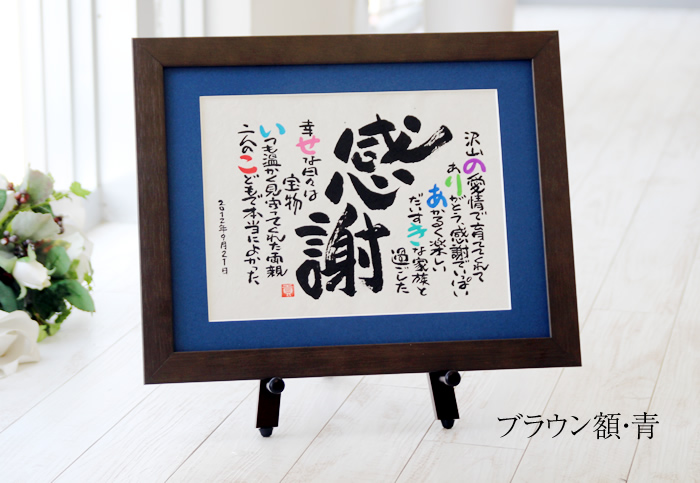 沢山の愛情で育ててくれて
ありがとう感謝でいっぱい
あかるく楽しい
だいすきな家族と
過ごした
感謝
幸せな日々は
宝物
いつも温かく見守ってくれた両親
二人のこどもで本当によかった
2012年9月21日
ブラウン額・青